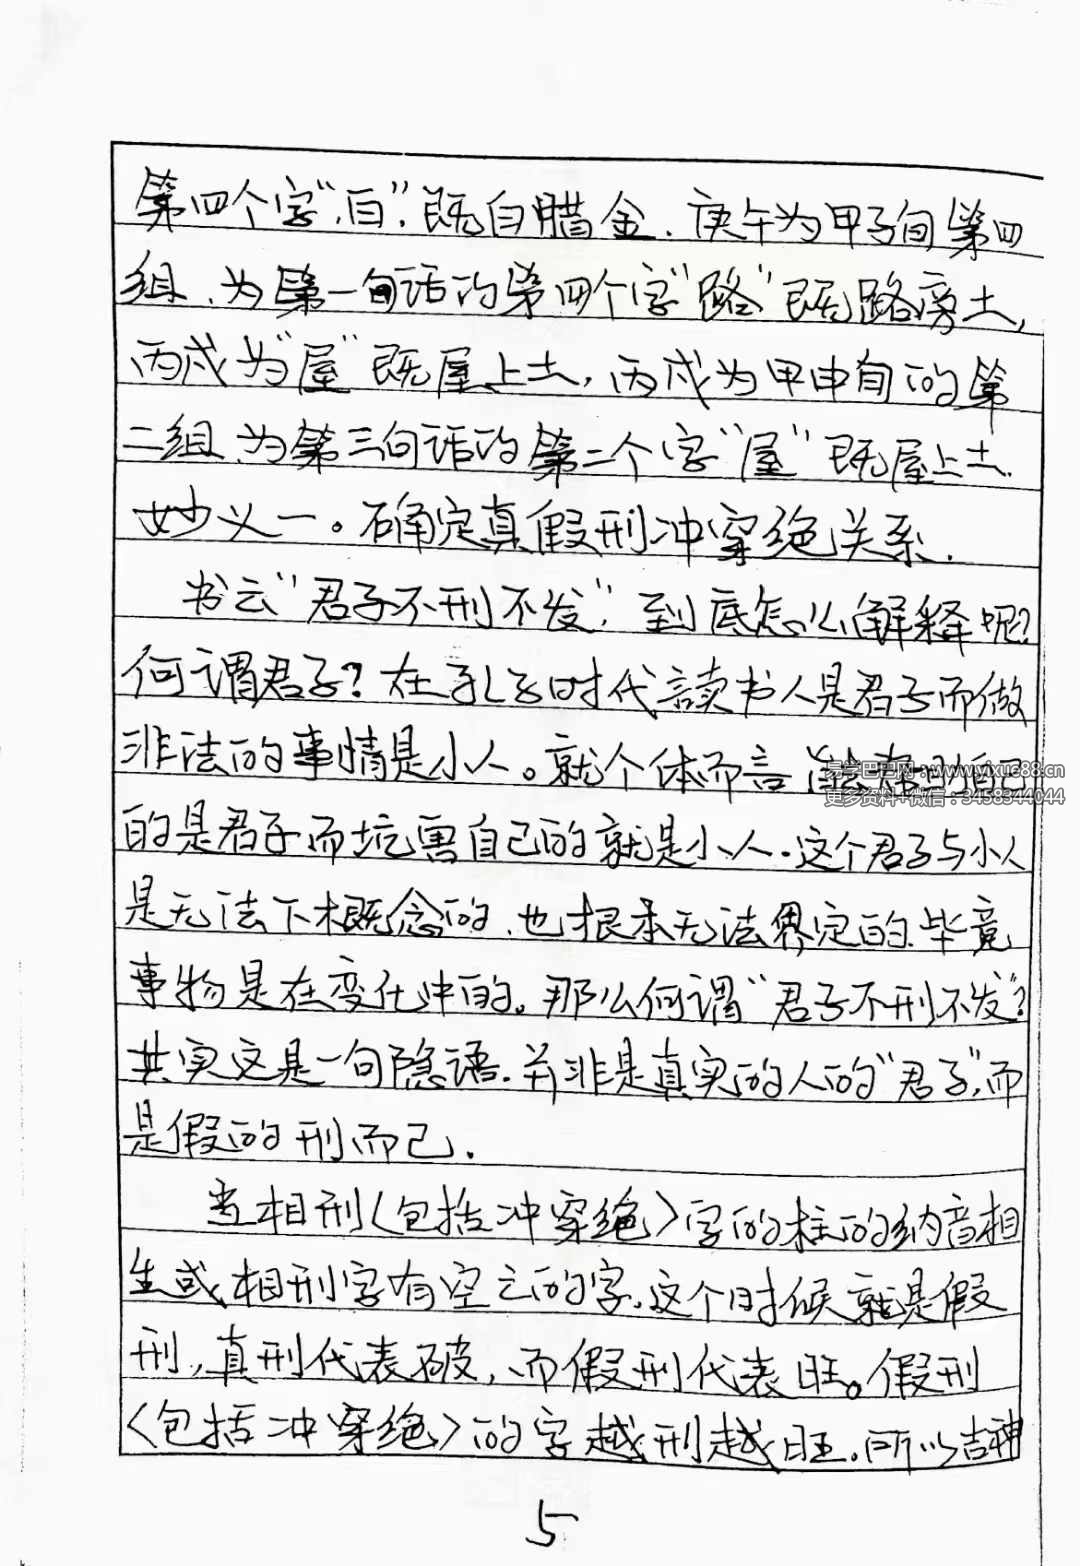 第四个字“白”，既白腊金、庚午为甲子旬第四
组、为第一句话的第四个字“路”既路旁土，
丙戌为“屋”既屋上土，丙戌为甲申旬的第
二组、为第三句话的第二个字“屋”既屋上土.
妙义一。确定真假刑冲穿绝关系.
书云“君子不刑不发”，到底怎么解释呢？
何谓君子？在孔子时代读书人是君子而做
非法的事情是小人。就个体而言 自己
易学巴巴网：www.yixuc88.cn
更多资料+微信：3458344044
的是君子而坑害自己的就是小人.这个君子与小人
是无法下概念的、也根本无法界定的.毕竟
事物是在变化中的。那么何谓“君子不刑不发”？
其实这是一句隐语.并非是真实的人的“君子”，而
是假的刑而已.
当相刑〈包括冲穿绝〉字的柱的纳音相
生或相刑字有空亡的字、这个时候就是假
刑，真刑代表破，而假刑代表旺。假刑
〈包括冲穿绝〉的字越刑越旺.所以吉神
5